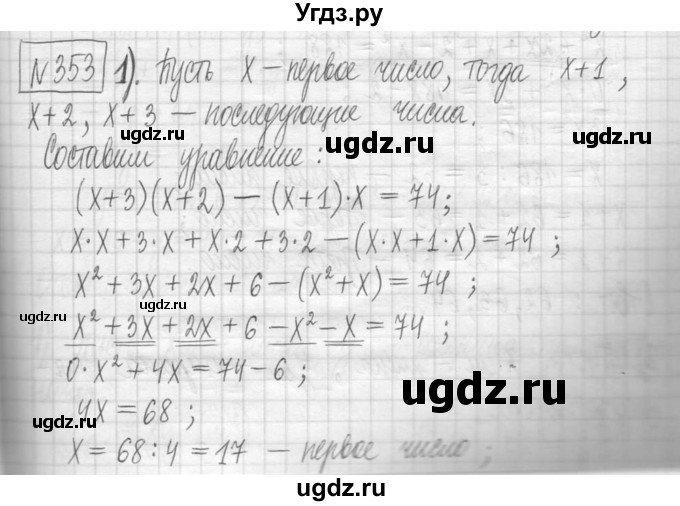 Угдз.ру
№353 1). Пусть x – первое число, тогда x+1,
x+2, x+3 – последующие числа.
ugdz.ru
Составим уравнение:
ugdz.ru
(x+3)(x+2) – (x+1)·x = 74;
x·x + 3·x + x·2 + 3·2 – (x·x + 1·x) = 74;
x² + 3x + 2x + 6 – (x² + x) = 74;
ugdz.ru
ugdz.ru
x² + 3x + 2x + 6 – x² – x = 74;
0·x² + 4x = 74 – 6;
ugdz.ru
ugdz.ru
4x = 68;
x = 68:4 = 17 – первое число;
ugdz.ru